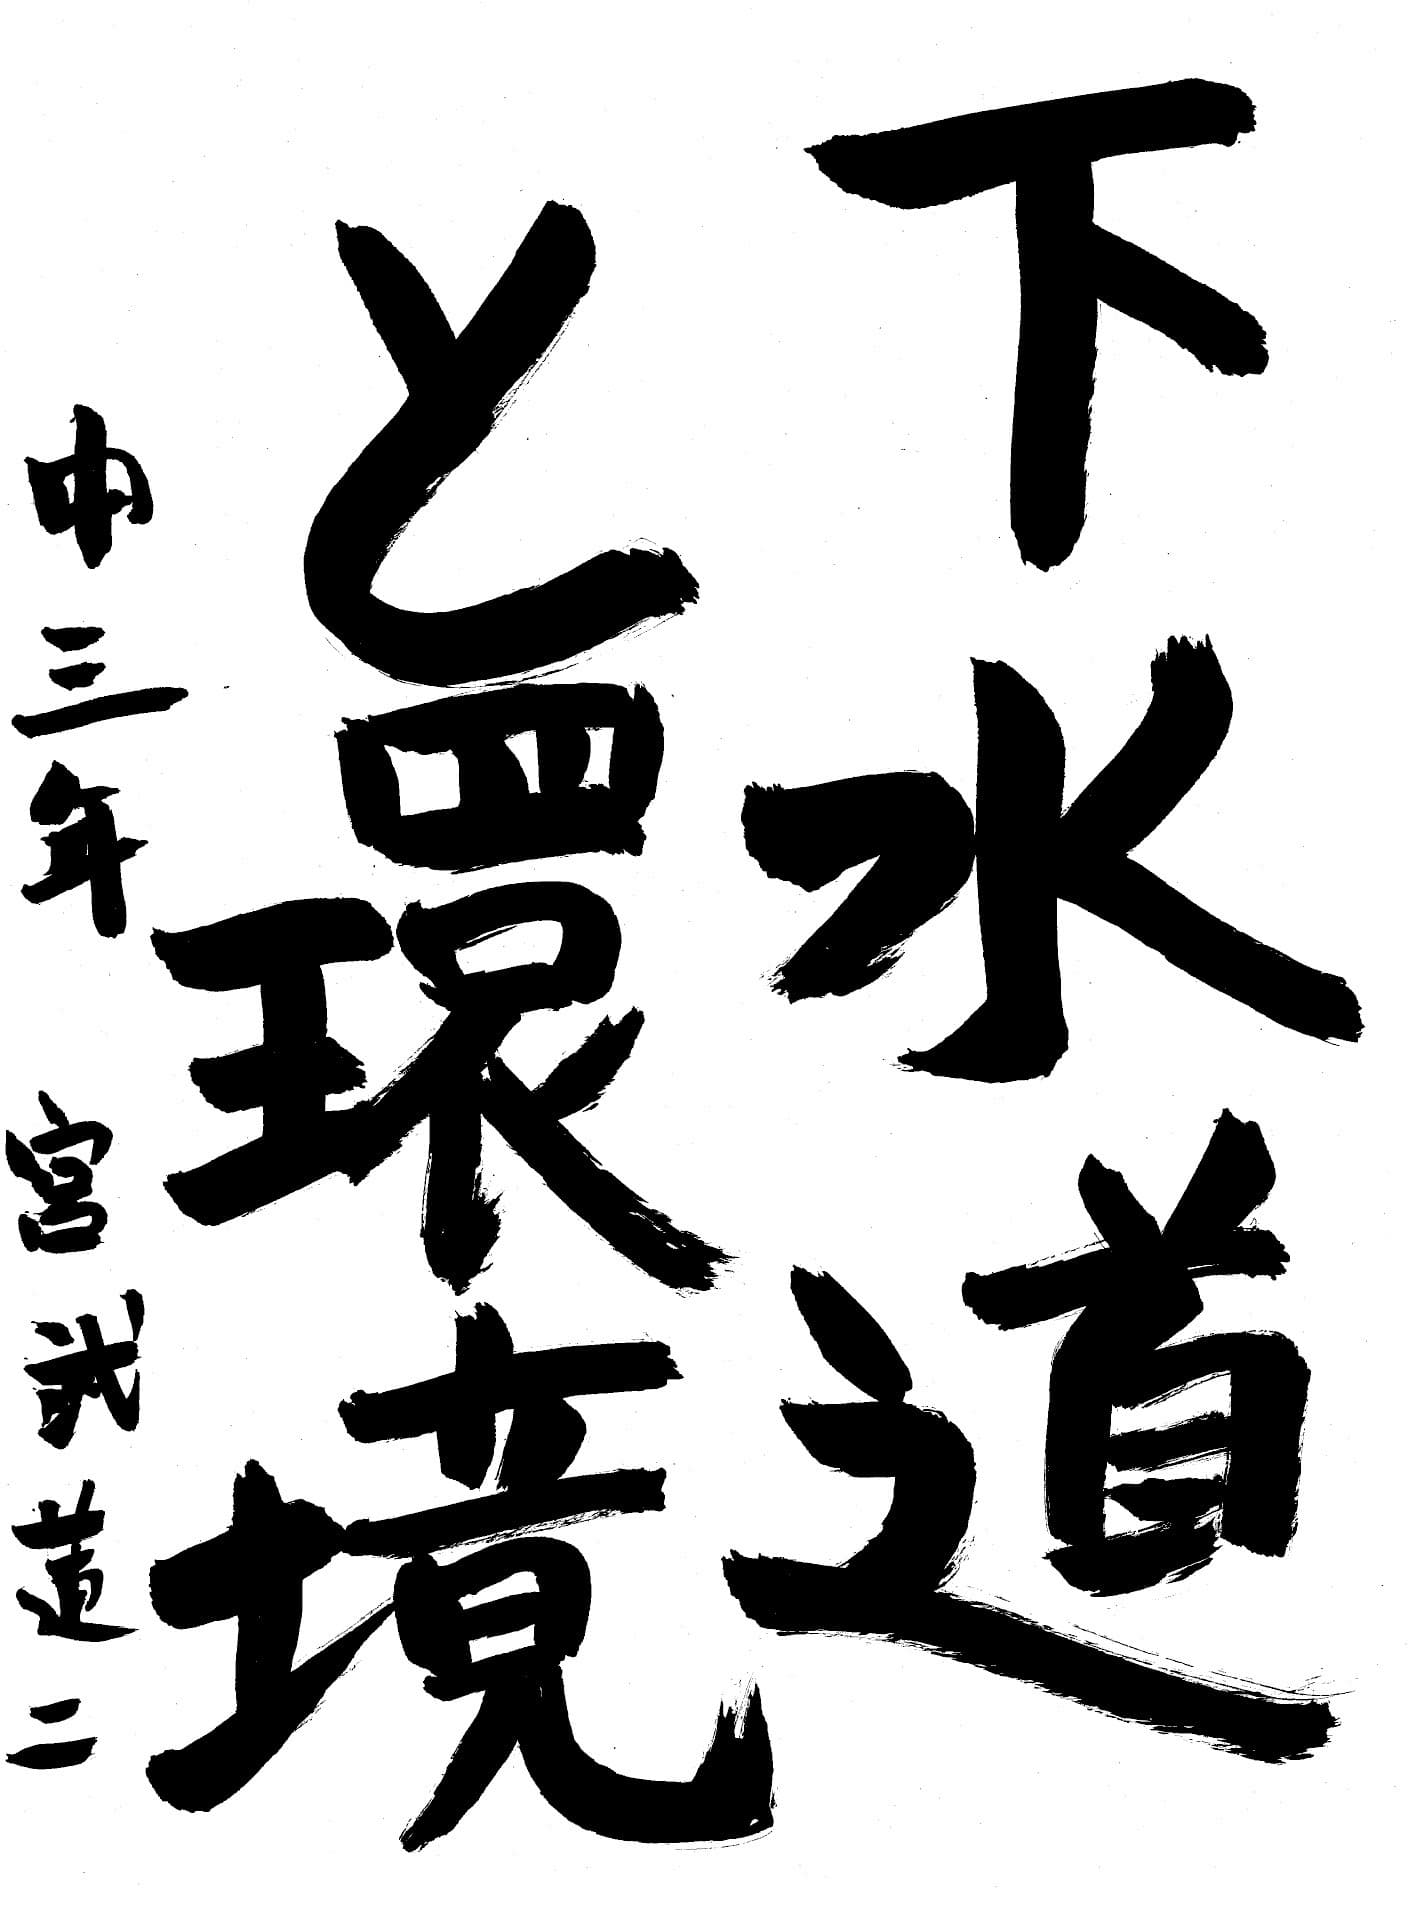 下水道
と環境
中三年 宮武道二